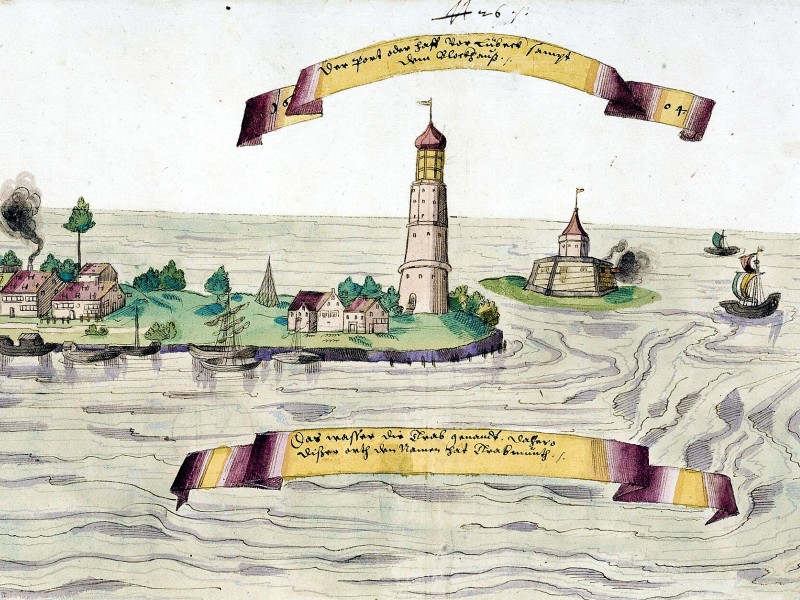 N 26 /.
Der Port oder haff Vor Lübeck sampt
dem Blockhauß ./.
16 04
Das wasser die Trab genandt. Dahero
dißer orth den Namen hat Trabmünth ./.